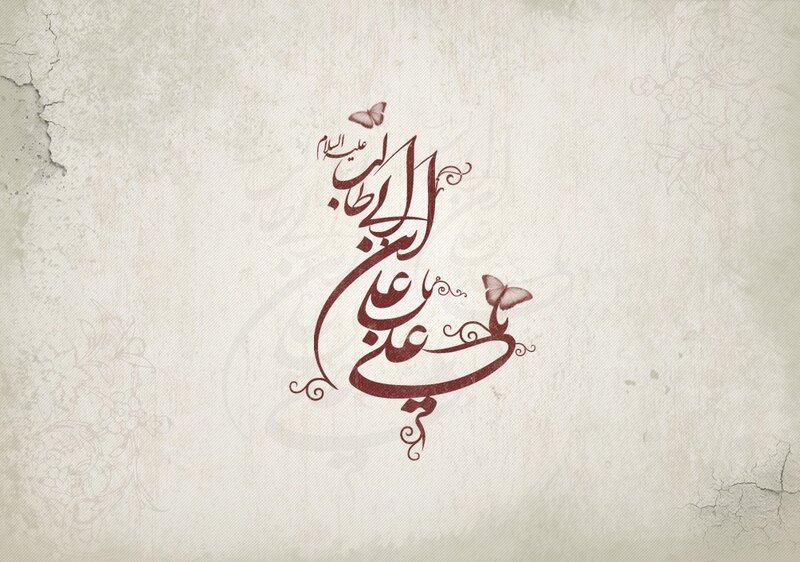 یا علی
یا علی
ابن
ابی طالب
علیه السلام